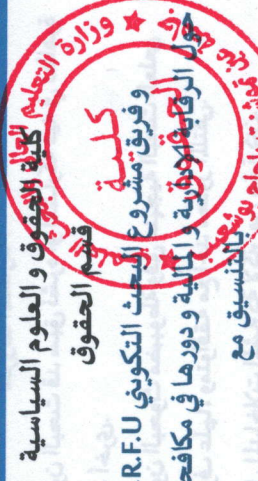 كلية الحقوق و العلوم السياسية
قسم الحقوق
و فريق مشروع البحث التكويني P.R.F.U
حول الرقابة الإدارية و المالية و دورها في مكافحة
بالتنسيق مع
وزارة التعليم العالي
كلية
الحقوق